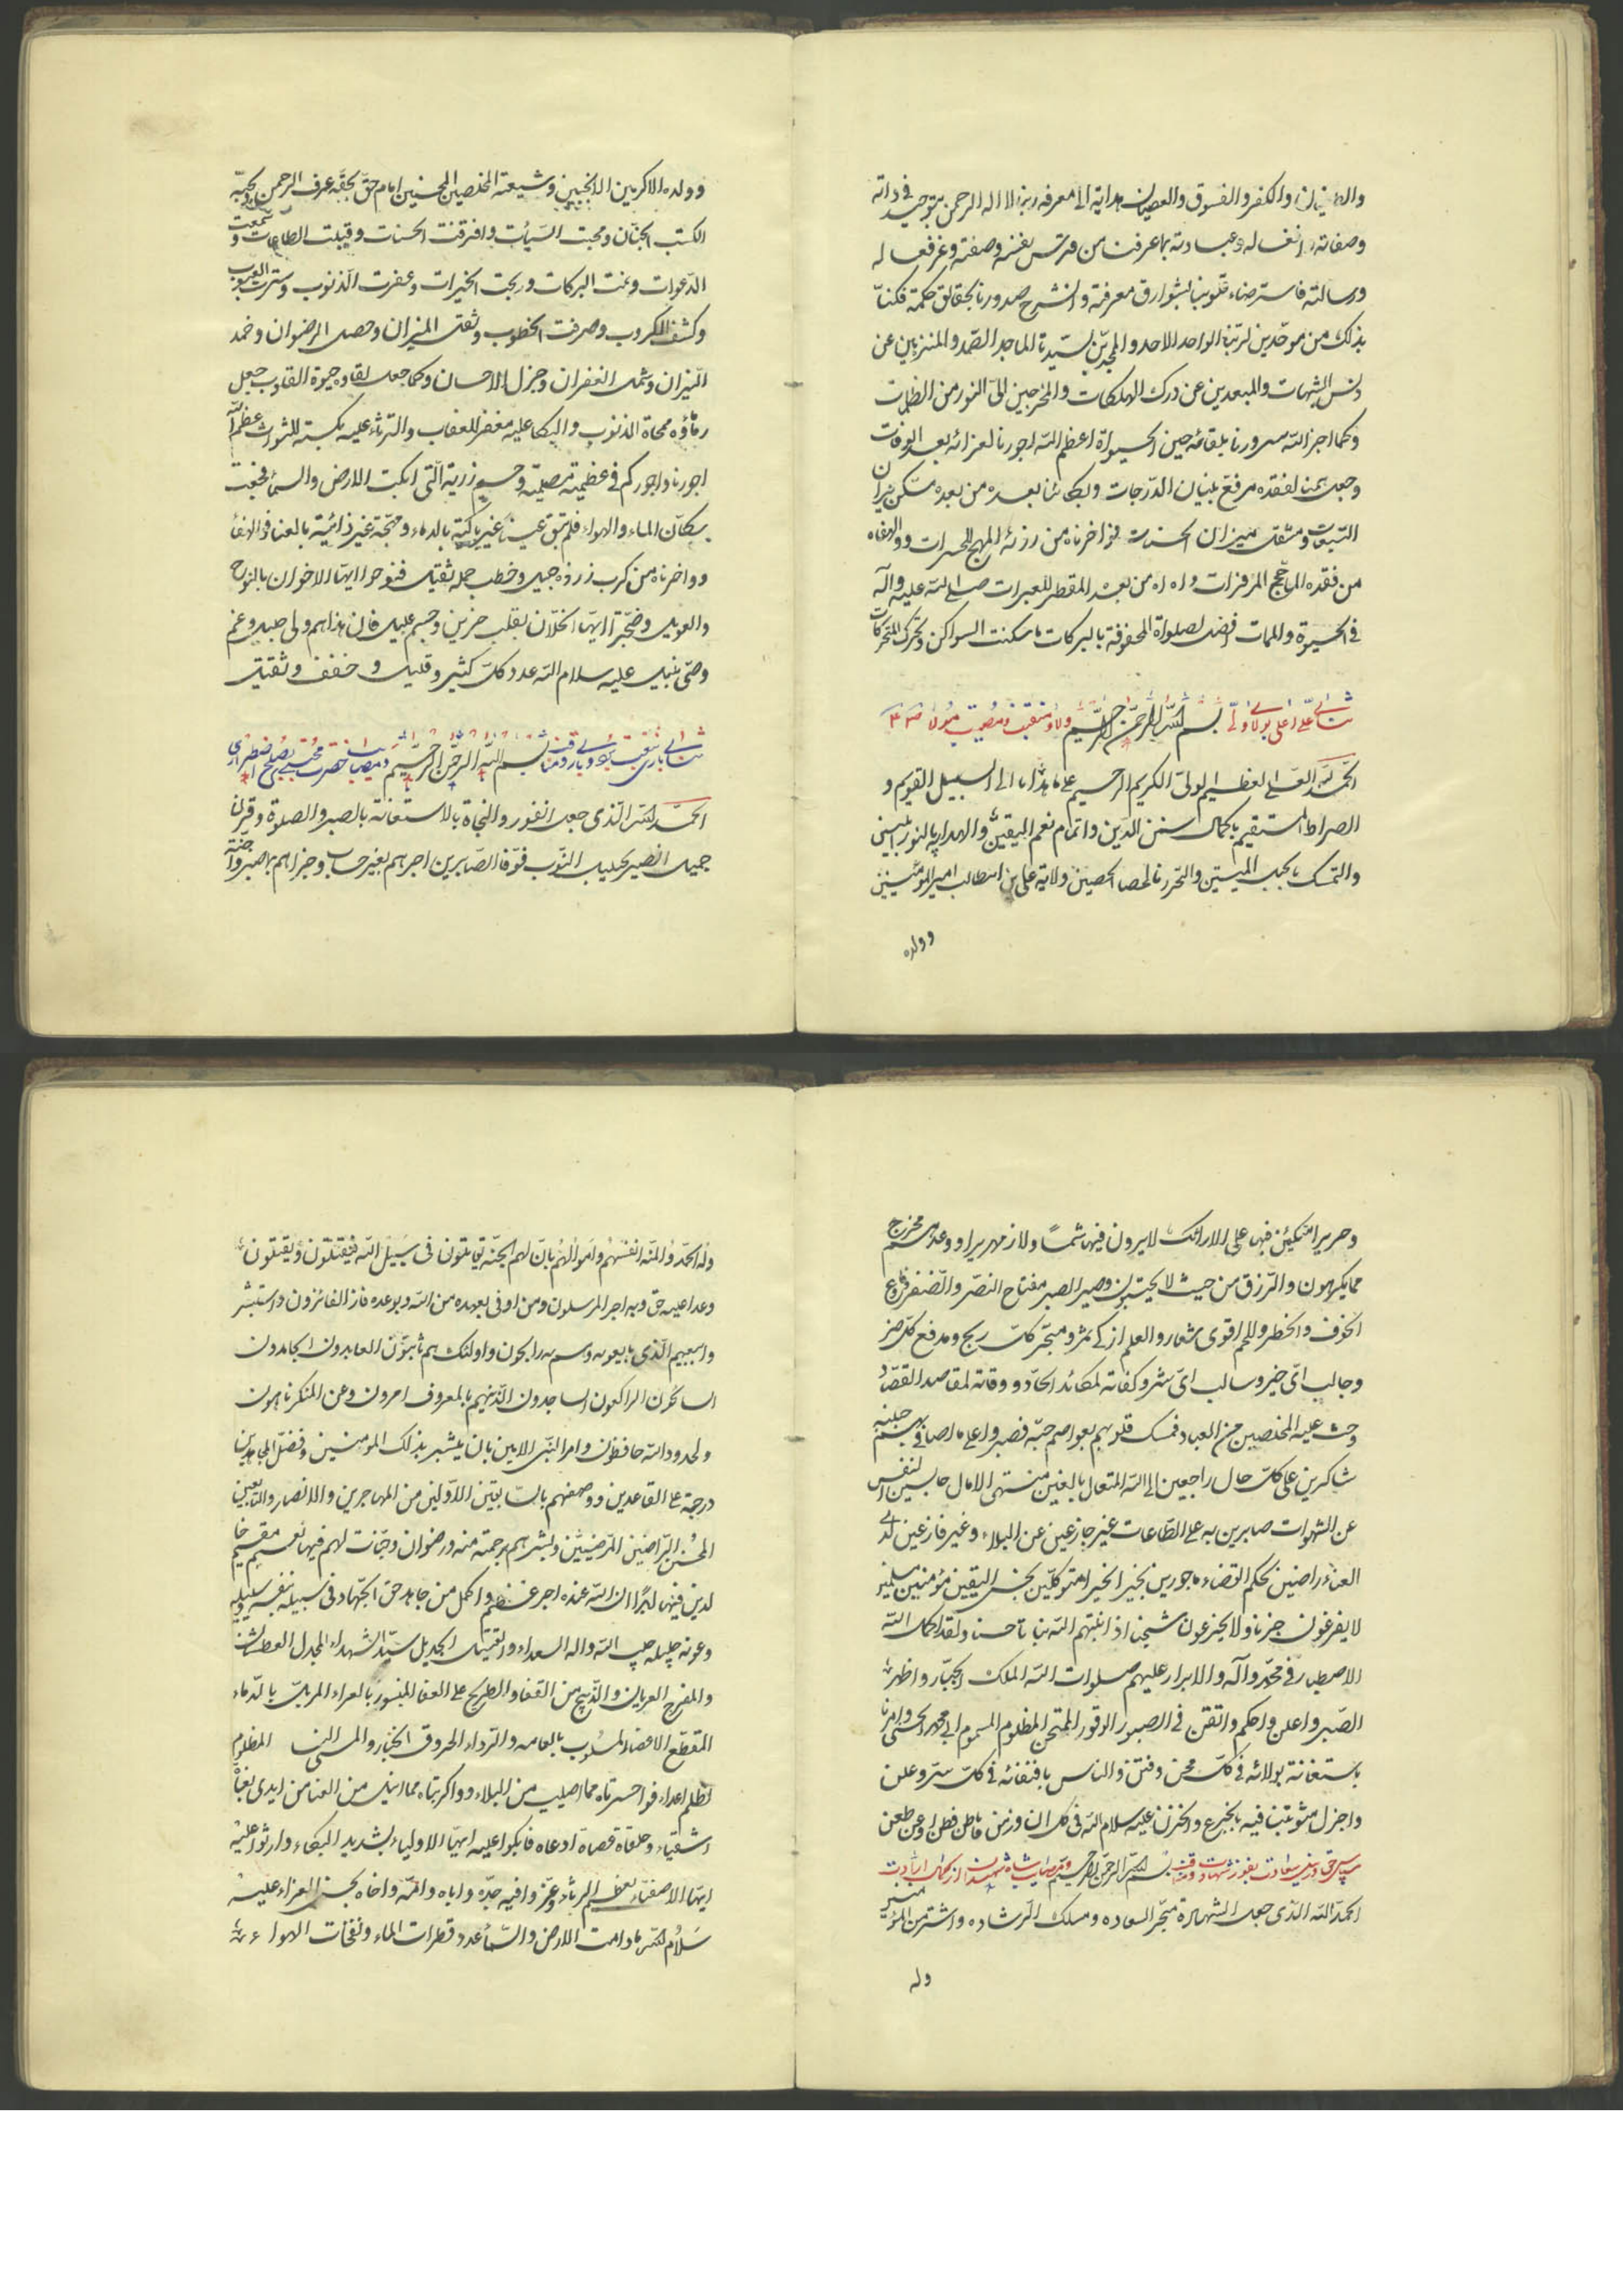 والطغیان والکفر والفسوق والعصیان هدایة الی معرفه ربنا لا اله الرحمن بتوحید فی ذاته
وصفاته وافعاله وعبادته بما عرفنا من قدس نفسه وصفته وغرفعاله
ورسالته فاستضاء قلوبنا بشوارق معرفة وانشرح صدورنا بحقایق حکمة فکنا
بذلک من موحدین لربنا الواحد الاحد والمجدین لسیدنا الماجد الصمد والمنزهین عن
دنس الشبهات والمبعدین عن درک الهلکات والمخرجین الی النور من الظلمات
وکما اجز الله سرورنا بلقائه حین الحیواة اعظم الله اجورنا لعزائه بعد الوفات
وجعل همنا لفقده مرفع بنیان الدرجات وبکائنا بعده من بعده مسکن نیران
التبعات ومثقل میزان الحسنات فواخرناه من رزئه المهیج للحسرات ووالهفاه
من فقده المأجج للزفرات واه اه من بعد المقطر للعبرات صلی الله علیه وآله
فی الحیوة والممات افضل صلواة المحفوفة بالبرکات ما سکنت السواکن وتحرک المتحرکات
ثنای علی اعلی بولاء ولی بسم الله الرحمن الرحیم ولاء ومنقبت ومصیبت مولا
الحمد لله العلی العظیم الولی الکریم الرحیم علی ما هدانا الی السبیل القویم و
الصراط المستقیم باکمال سنن الدین واتمام نعم الیقین والهدایه بالنور المبین
والتمسک بحبل المتین والتحرز بالحصا الحصین ولایة علی بن ابیطالب امیر المؤمنین
وولده
وولده الاکرمین الانجبین وشیعته المخلصین المحسنین امام حق بحقه عرف الرحمن وبحبه
اکتسب الجنان ومحیت السیئات وافترقت الحسنات وقبلت الطاعات وسمعت
الدعوات ونمت البرکات وربحت الخیرات وغفرت الذنوب وسترت العیوب
وکشف الکروب وصرفت الخطوب وثقل المیزان وحصل الرضوان وخمد
النیران وشمل الغفران وجزل الاحسان وکما جعل لقاوه حیوة القلوب جعل
رثاؤه ممحاة الذنوب والبکا علیه مغفر للعقاب والترثاء علیه مکسبة للثواب عظم الله
اجورنا واجورکم فی عظیمة مصیبته وجسیم رزیة التی ابکت الارض والسماء فجعت
بسکان الماء والهواء فلم تبق عیناً غیر باکیة بالدماء ومهجة غیر ذائبة بالعنا فوالهفا
وواخرناه من کرب رزوه جلیل وخطب جله ثقیل فنوحوا ایها الاخوان بالنوح
والعویل وضجوا ایها الخلان بقلب حزین وجسم علیل فان هذا هم ولی جلیل وغم
وصی نبیل علیه سلام الله عدد کل کثیر وقلیل و خفیف وثقیل
بسم الله الرحمن الرحیم ومصایب حضرت مجتبی بصلح اضطراری
الحمد لله الذی جعل الفوز والنجاة بالاستعانة بالصبر والصلوة وقرن
جمیل الصبر بجلیل الثوب فوفا الصابرین اجرهم بغیر حساب وجزاهم بما صبروا جنة
وحریرا متکئین فیها علی الارائک لا یرون فیها شمساً ولا زمهریرا ووعدهم مخرج
مما یکرهون والرزق من حیث لا یحتسبون وصیر الصبر مفتاح النصر والظفر
الخوف والخطر وللحلم اقوی شعار والعلم ازکی ثمر ومتجر کل ربح ومدفع کل ضر
وجالب ای خیر وسالب ای شر وکفاته لمکائد الحاد ووقاته لمقاصد القصاد
وحث علیه المخلصین من العباد فمسک قلوبهم بعواصم حبه فصبروا علی ما اصابهم فی جنبه
شاکرین علی کل حال راجعین الی الله المتعال بالغین منتهی الامال حابسین النفس
عن الشهوات صابرین به علی الطاعات غیر جازعین عن البلاء وغیر فازعین لدی
العناء راضین بحکم القضاء ماجورین بخیر الخیرا متوکلین بحسن الیقین مؤمنین مسلمین
لا یفزعون حزنا ولا یجزعون شجنا اذ انبتهم الله نباتا حسنا ولقد اکمل الله
الاصطبار فی محمد وآله والابرار علیهم صلوات الله الملک الجبار واظهر
الصبر واعلن واحکم واتقن فی الصبور الوقور الممتحن المظلوم المسموم ابی محمد الحسن وامرنا
باستغاثة بولائه فی کل محن وفتن والناس باقتفائه فی کل سر وعلن
واجزل مثوبتنا فیه بالجزع والحزن علیه سلام الله فی کل ان وزمن ما طن فطن او عن طعن
بسم الله الرحمن الرحیم ومصایب شاه شهیدان
الحمد لله الذی جعل الشهادة متجر السعاده ومسلک الرشاده واشتر من المؤمنین
وله
وله الحمد والمنه انفسهم واموالهم بان لهم الجنة یقاتلون فی سبیل الله فیقتلون ویقتلون
وعدا علیه حق وبه اجر المرسلون ومن اوفی بعهده من الله وبوعده فاز الفائزون واستبشر
وابیعهم الذی بایعوبه وسم به رابحون واولئک هم تائبون العابدون الحامدون
السائحون الراکعون الساجدون الذینهم بالمعروف امرون وعن المنکر ناهون
ولحدود الله حافظون وامر النبی الامین بان یبشر بذلک المومنین وفضل المجاهدین
درجة علی القاعدین ووصفهم بالسابقین الاولین من المهاجرین والانصار والتابعین
المحسن الراضین المرضیین وبشرهم برحمته منه ورضوان وجنات لهم فیها نعیم مقیم
لدین فیها ابدًا ان الله عنده اجر عظیم واکمل من جاهد حق الجهاد فی سبیله بنفسه
وعونه حبیب الله واله السعداء والقتیل الجدیل سید الشهداء المجدل العطشان
والمفرح العریان والذبیح من القفا والطریح علی العفا المنسور بالعراء المرمل بالدماء
المقطع الاعضاء المسلوب بالعمامه والرداء المحروق الخباء والمسبی النسا المظلوم
بظلم اعداء فواحسرتاه مما اصیب من البلاء وواکربتاه مما انیل من العنا من ایدی بغاة
اشقیاء وطغاة قصاة ادعاه فابکوا علیه ایها الاولیاء بشدید البکاء وارثوا علیه
ایها الاصفیاء بعظیم الرثاء وعزوا فیه جده واباه وامه واخاه بحسن العزاء علیه
سلام الله ما دامت الارض والسماء عدد قطرات الماء ونفحات الهواء